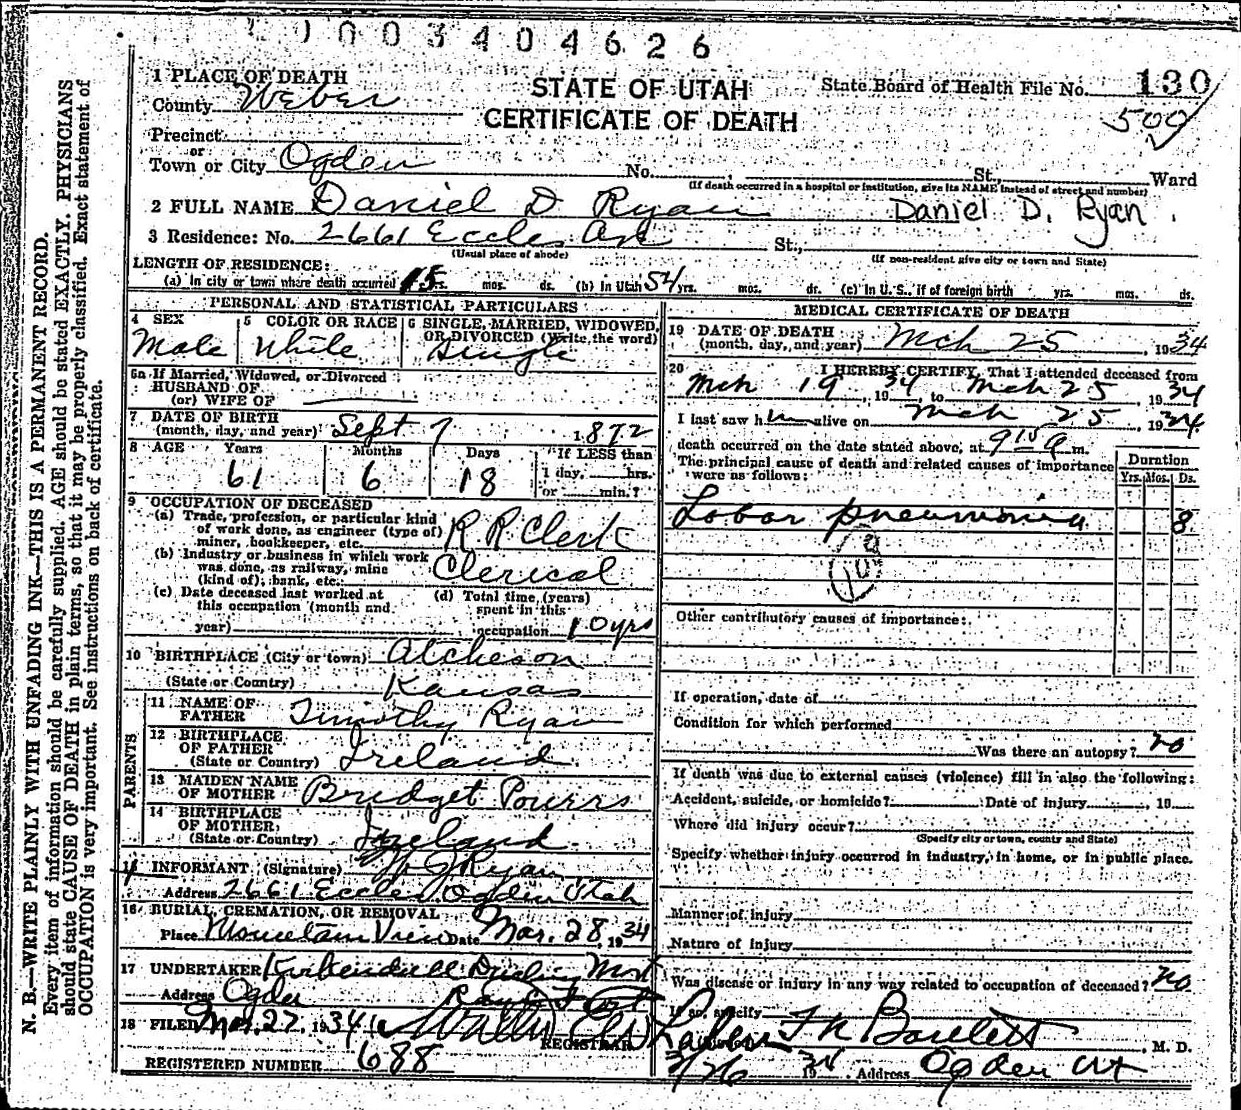 0003404626
1 PLACE OF DEATH
STATE OF UTAH
CERTIFICATE OF DEATH
State Board of Health File No. 130
500
County Weber
Precinct
or
Town or City Ogden No. , St., Ward
(If death occurred in a hospital or institution, give its NAME instead of street and number)
2 FULL NAME Daniel D Ryan Daniel D. Ryan.
3 Residence: No. 2661 Eccles Ave St.,
(Usual place of abode) (If non-resident give city or town and State)
LENGTH OF RESIDENCE:
(a) In city or town where death occurred 15 yrs. mos. ds. (b) In Utah 54 yrs. mos. ds. (c) In U. S., if of foreign birth yrs. mos. ds.
PERSONAL AND STATISTICAL PARTICULARS
4 SEX Male
5 COLOR OR RACE White
6 SINGLE, MARRIED, WIDOWED, OR DIVORCED (Write the word) Single
6a If Married, Widowed, or Divorced
HUSBAND OF
(or) WIFE OF
7 DATE OF BIRTH
(month, day, and year) Sept 7 1872
8 AGE Years Months Days If LESS than
1 day, hrs.
61 6 18 or min.?
9 OCCUPATION OF DECEASED
(a) Trade, profession, or particular kind
of work done, as engineer (type of)
miner, bookkeeper, etc. R R Clerk
(b) Industry or business in which work
was done, as railway, mine
(kind of); bank, etc. Clerical
(c) Date deceased last worked at
this occupation (month and
year)
(d) Total time (years)
spent in this
occupation 10 yrs
10 BIRTHPLACE (City or town) Atcheson
(State or Country) Kansas
PARENTS
11 NAME OF
FATHER Timothy Ryan
12 BIRTHPLACE
OF FATHER
(State or Country) Ireland
13 MAIDEN NAME
OF MOTHER Bridget Powrs
14 BIRTHPLACE
OF MOTHER
(State or Country) Ireland
15 INFORMANT (Signature) Ryan
Address 2661 Eccles Ogden Utah
16 BURIAL, CREMATION, OR REMOVAL
Place Mountain View Date Mar. 28, 1934
17 UNDERTAKER Kirkendall
Address Ogden
18 FILED Mar. 27, 1934
REGISTRAR
REGISTERED NUMBER 688
MEDICAL CERTIFICATE OF DEATH
19 DATE OF DEATH
(month, day, and year) Mch 25, 1934
20 I HEREBY CERTIFY, That I attended deceased from
Mch 19, 1934, to Mch 25, 1934
I last saw h im alive on Mch 25, 1934.
death occurred on the date stated above, at 9 15 a m.
The principal cause of death and related causes of importance
were as follows:
Duration
Yrs. Mos. Ds.
Lobar pneumonia 8
Other contributory causes of importance:
If operation, date of
Condition for which performed
Was there an autopsy? no
If death was due to external causes (violence) fill in also the following:
Accident, suicide, or homicide? Date of injury , 19
Where did injury occur?
(Specify city or town, county and State)
Specify whether injury occurred in industry, in home, or in public place.
Manner of injury
Nature of injury
Was disease or injury in any way related to occupation of deceased? no
If so, specify
Bartlett, M. D.
3/26 1934. Address Ogden Ut
N. B.—WRITE PLAINLY WITH UNFADING INK—THIS IS A PERMANENT RECORD.
Every item of information should be carefully supplied. AGE should be stated EXACTLY. PHYSICIANS
should state CAUSE OF DEATH in plain terms, so that it may be properly classified. Exact statement of
OCCUPATION is very important. See instructions on back of certificate.